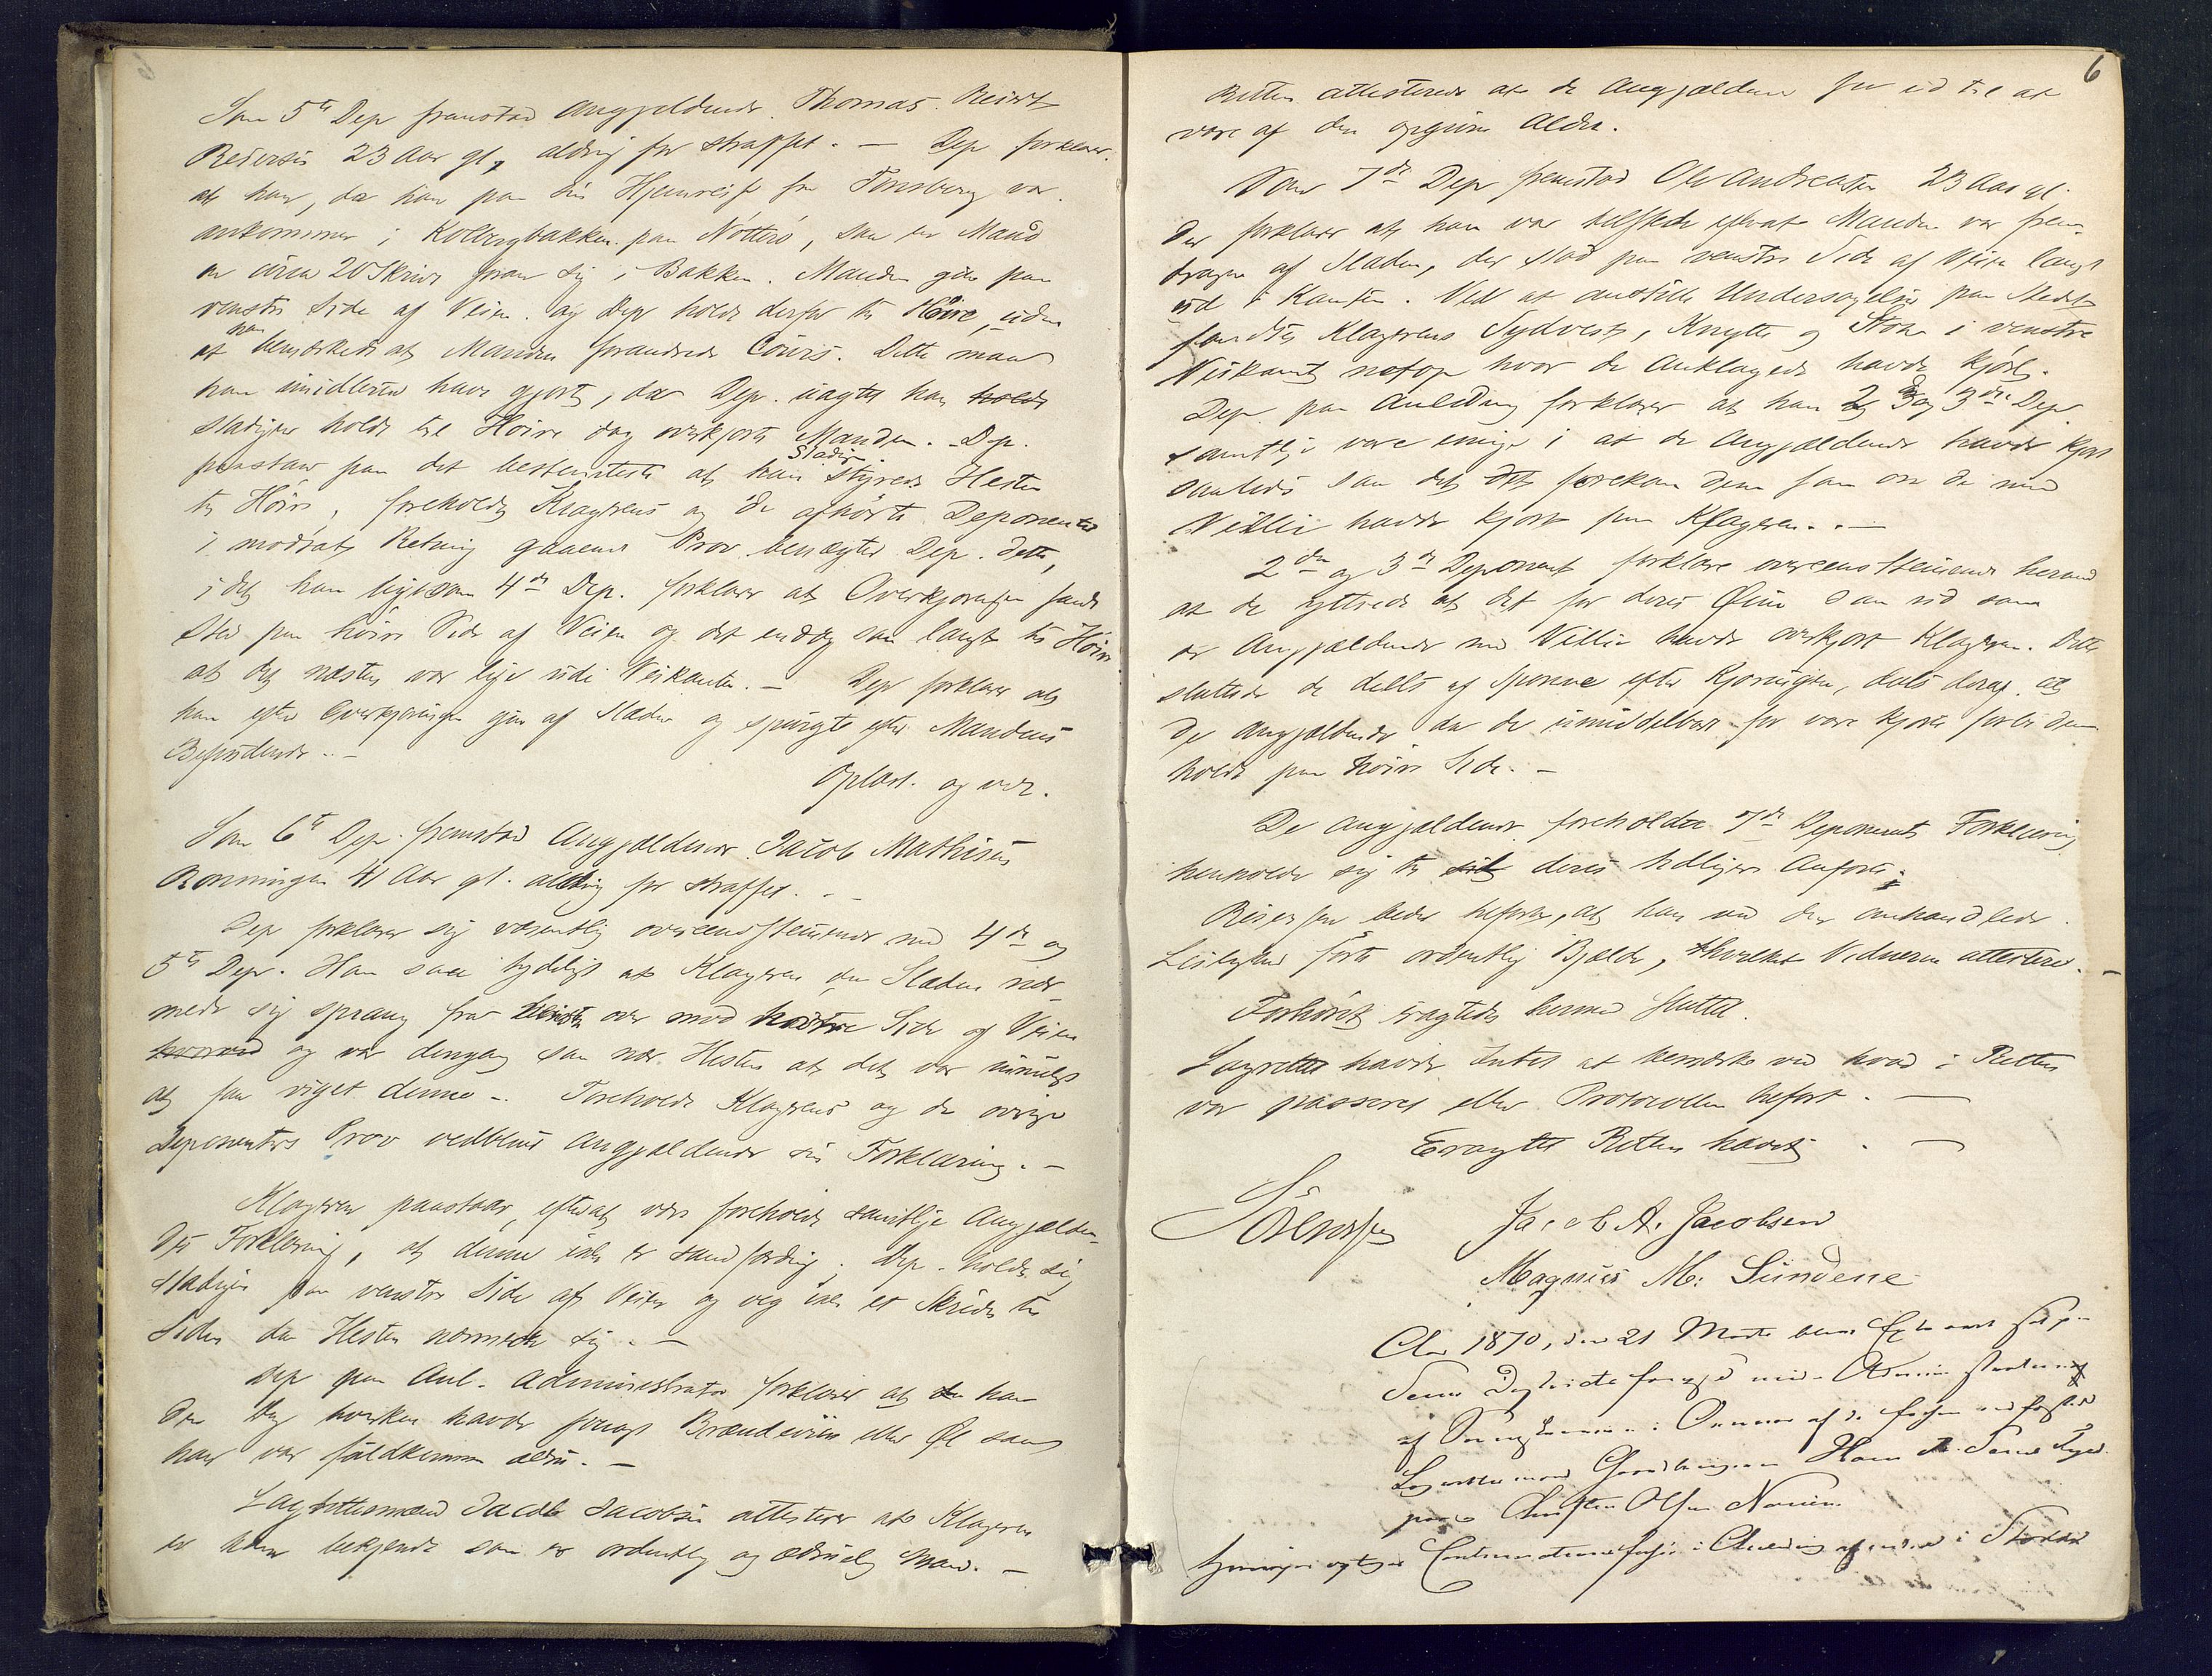 Som 5te Dep fremstod Angjeldende Thomas
23 Aar gl, aldrig før straffet. — Dep forklarer
at han, da han paa sin Hjemreise fra Tønsberg var
ankommen i paa Nøtterø, saa en Mand
en circa 20 Skridt foran sig i Bakken. Manden gik paa
venstre Side af Veien og Dep holdt derfor til Høire, uden
at han bemærkede at Manden forandrede Cours. Dette maa
han imidlertid have gjort, da Dep. uagtet han holdt
stadigen holdt til Høire dog overkjørte Manden. Dep.
paastaar paa det bestemteste at han stadig styrede Hesten
til Høire, foreholdt Klagerens og de afhørte Deponenters
i modsat Retning gaaende Prov benægter Dep. dette,
idet han ligesom 4de Dep. forklarer at Overkjørselen fandt
Sted paa høire Side af Veien og det endog saa langt til Høire
at det næsten var lige ude i Veikanten. — Dep forklarer at
han efter Overkjøringen gik af Sladen og spurgte efter Mandens
Befindende. —
Oplæst og ved.
Som 6te Dep. fremstod Angjældende Jacob Mathisen
Rønningen 41 Aar gl. aldrig før straffet. —
Dep forklarer sig væsentlig overeensstemmende med 4de og
5te Dep. Han saa tydeligt at Klageren da Sladen nær-
mede sig sprang fra venstre over mod høire Side af Veien
og var dengang saa nær Hesten at det var umuligt
at faa viget denne. Foreholdt Klagerens og de øvrige
Deponenters Prov vedblev Angjældende sin Forklaring. —
Klageren paastaar, efterat være foreholdt samtlige Angjælden-
des Forklaring, at denne ikke er sandfærdig. Dep. holdt sig
stadigen paa venstre Side af Veien og veg ikke et Skridt til
Siden da Hesten nærmede sig. —
Dep paa Anl. Administrator forklarer at han
den Dag hverken havde smagt Brændeviin eller Øl samt
han var fuldkommen ædru. —
Lagrettesmand Jacob Jacobsen attesterer at Klageren
er ham bekjendt som en ordentlig og ædruelig Mand. —
6
Retten attesterede at de Angjældende saa ud til at
være af den opgivne Alder.
Som 7de Dep fremstod Ole Andreassen 23 Aar gl.
Dep forklarer at han var tilstede efterat Manden var frem-
dragen af Sladen, der stod paa venstre Side af Veien langt
ud i Kanten. Ved at anstille Undersøgelse paa Stedet
fandtes Klagerens Sydvest, Knytte og Stok i venstre
Veikant netop hvor de Anklagede havde kjørt.
Dep paa Anledning forklarer at han 2 og 3die Dep
samtlige vare enige i at de Angjældende havde kjørt
saaledes saa det forekom dem som om de med
Villie havde kjørt paa Klageren. —
2den og 3die Deponent forklare overeensstemmende hermed
at de yttrede at det for deres Øine saa ud som
om Angjældende med Villie havde overkjørt Klageren. Dette
sluttede de dels af Sporene efter Kjøringen, dels deraf at
de Angjældende da de umiddelbart før vare kjørte forbi dem
holdt paa høire Side. —
De Angjældende foreholdte 7de Deponents Forklaring
henholdt sig til deres tidligere Anførte.
beder tilført, at han ved den omhandlede
Leilighed førte ordentlig Bjælde, hvilket Vidnerne attestere. —
Forhøret ansaaes hermed sluttet.
Lagrettet havde Intet at bemærke ved hvad i Retten
var passeret eller Protocollen tilført. —
Eragtet Retten hævet. —
Jacob A. Jacobsen
Magnus M: Sundene
Aar 1870, den 21 Marts blev Extraret sat paa
med Administration
af i Overvær af de
Lagrettemænd Hans
Christen Olsen
i Anledning af